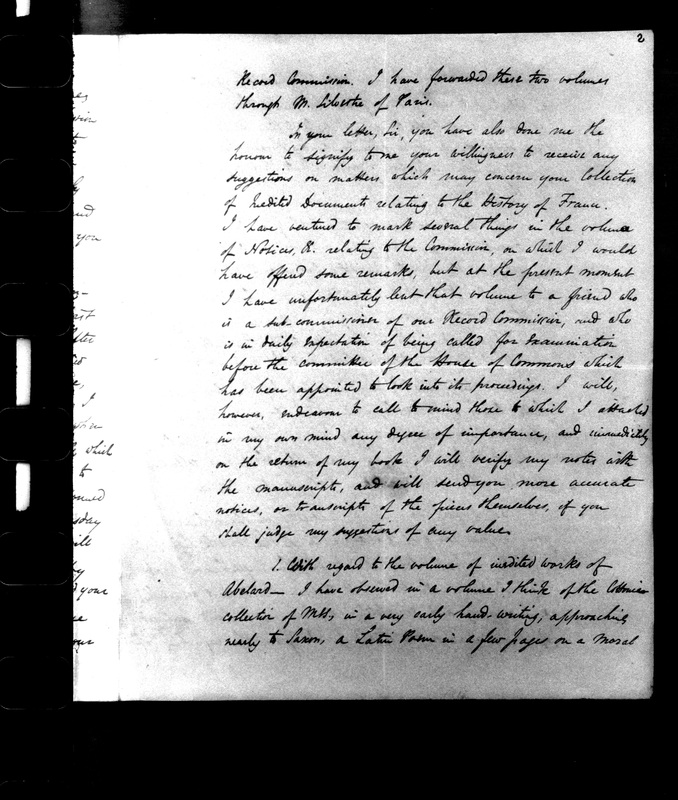 2
Record Commission. I have forwarded these two volumes
through M. Silvestre of Paris.
In your letter, Sir, you have also done me the
honour to signify to me your willingness to receive any
suggestions on matters which may concern your Collection
of Inedited Documents relating to the History of France.
I have ventured to mark several things in the volume
of Notices, &. relating to the Commission, on which I would
have offered some remarks, but at the present moment
I have unfortunately lent that volume to a friend who
is a sub-commissioner of our Record Commission, and who
is in daily expectation of being called for examination
before the committee of the House of Commons which
has been appointed to look into its proceedings. I will,
however, endeavour to call to mind those to which I attached
in my own mind any degree of importance, and immediately
on the return of my book I will verify my notes with
the manuscripts, and will send you more accurate
notices, or transcripts of the pieces themselves, if you
shall judge my suggestions of any value.
1. With regard to the volume of inedited works of
Abelard— I have observed in a volume I think of the Cottonian
collection of MSS, in a very early hand-writing, approaching
nearly to Saxon, a Latin Poem in a few pages on a moral